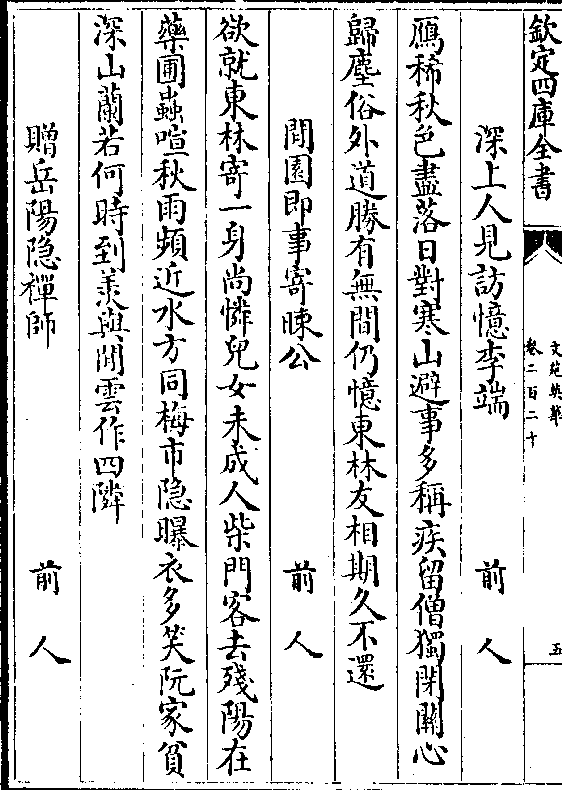 欽定四庫全書
文苑英華
卷二百二十
五
深上人見訪憶李端 前人
鴈稀秋色盡落日對寒山避事多稱疾留僧獨閉關心
歸塵俗外道勝有無間仍憶東林友相期久不還
閒園即事寄暕公 前人
欲就東林寄一身尚憐兒女未成人柴門客去殘陽在
藥圃蟲喧秋雨頻近水方同梅市隐曝衣多笑阮家貧
深山蘭若何時到羡與閒雲作四隣
贈岳陽隐禪師 前人